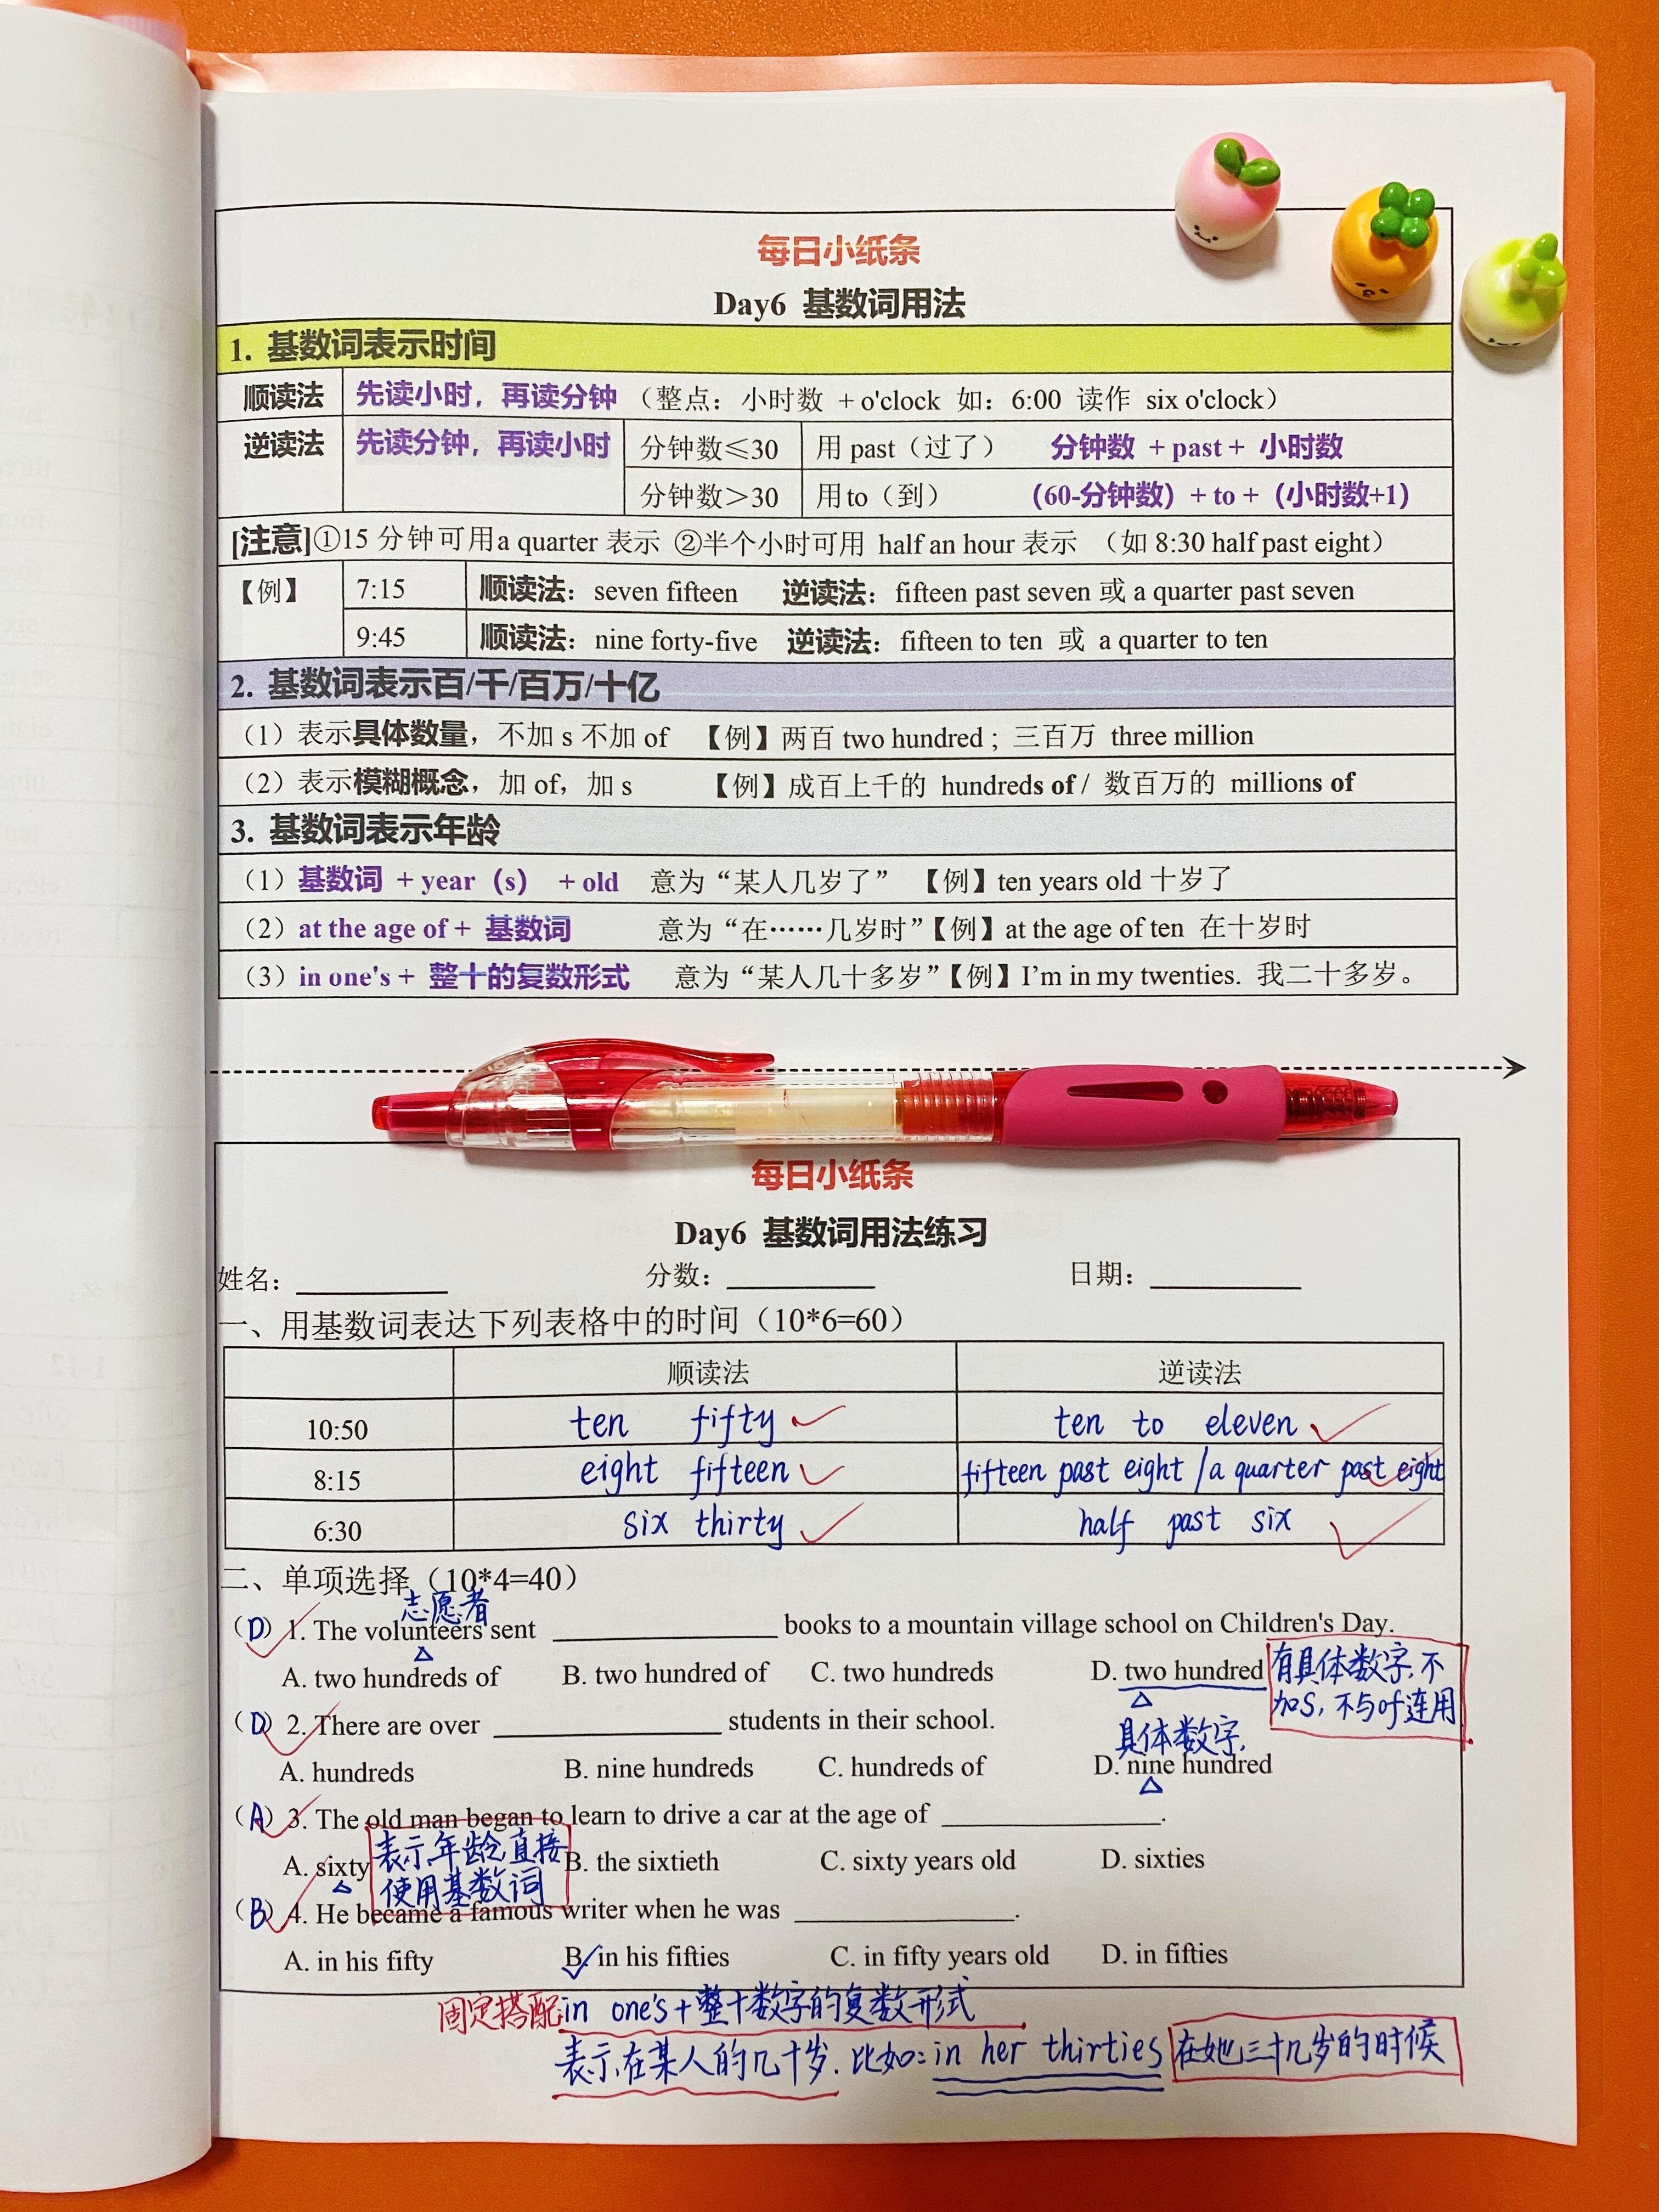 每日小纸条
Day6 基数词用法
1. 基数词表示时间
顺读法 先读小时，再读分钟（整点：小时数 + o'clock 如：6:00 读作 six o'clock）
逆读法 先读分钟，再读小时 分钟数≤30 用 past（过了） 分钟数 + past + 小时数
分钟数＞30 用to（到） （60-分钟数）+ to +（小时数+1）
[注意]①15 分钟可用a quarter 表示 ②半个小时可用 half an hour 表示 （如 8:30 half past eight）
【例】 7:15 顺读法：seven fifteen 逆读法：fifteen past seven 或 a quarter past seven
9:45 顺读法：nine forty-five 逆读法：fifteen to ten 或 a quarter to ten
2. 基数词表示百/千/百万/十亿
（1）表示具体数量，不加 s 不加 of 【例】两百 two hundred ; 三百万 three million
（2）表示模糊概念，加 of，加 s 【例】成百上千的 hundreds of / 数百万的 millions of
3. 基数词表示年龄
（1）基数词 + year（s） + old 意为“某人几岁了” 【例】ten years old 十岁了
（2）at the age of + 基数词 意为“在……几岁时”【例】at the age of ten 在十岁时
（3）in one's + 整十的复数形式 意为“某人几十多岁”【例】I'm in my twenties. 我二十多岁。
每日小纸条
Day6 基数词用法练习
姓名：________ 分数：________ 日期：________
一、用基数词表达下列表格中的时间（10*6=60）
顺读法 逆读法
10:50 ten fifty ten to eleven
8:15 eight fifteen fifteen past eight / a quarter past eight
6:30 six thirty half past six
二、单项选择（10*4=40）
志愿者
（D）1. The volunteers sent ____________ books to a mountain village school on Children's Day.
A. two hundreds of B. two hundred of C. two hundreds D. two hundred
有具体数字，不
加S，不与of连用
（D）2. There are over ____________ students in their school.
具体数字.
A. hundreds B. nine hundreds C. hundreds of D. nine hundred
（A）3. The old man began to learn to drive a car at the age of ____________.
A. sixty B. the sixtieth C. sixty years old D. sixties
表示年龄直接
使用基数词
（B）4. He became a famous writer when he was ____________.
A. in his fifty B. in his fifties C. in fifty years old D. in fifties
固定搭配in one's+整十数字的复数形式
表示在某人的几十岁. 比如：in her thirties 在她三十几岁的时候